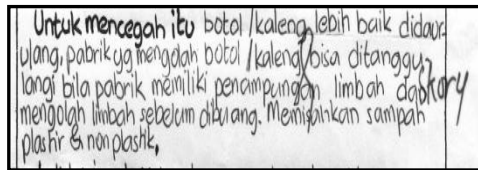 Untuk mencegah itu botol/kaleng lebih baik didaur-
ulang, pabrik yg mengolah botol/kaleng bisa ditanggu-
langi bila pabrik memiliki penampungan limbah dan
mengolah limbah sebelum dibuang. Memisahkan sampah
plastik & non plastik.